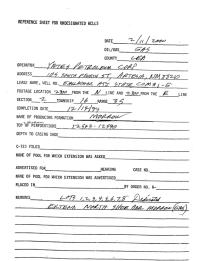 REFERENCE SHEET FOR UNDESIGNATED WELLS
DATE 2/11/2000
OIL/GAS GAS
COUNTY LEA
OPERATOR YATES PETROLEUM CORP
ADDRESS 105 SOUTH FOURTH ST, ARTESIA, NM 88210
LEASE NAME, WELL NO. STATE COM
FOOTAGE LOCATION FROM THE N LINE AND FROM THE E LINE
SECTION 2 TOWNSHIP 16 RANGE 35
COMPLETION DATE
NAME OF PRODUCING FORMATION MORROW
TOP OF PERFORATIONS
DEPTH TO CASING SHOE
C-123 FILED
NAME OF POOL FOR WHICH EXTENSION WAS ASKED
ADVERTISED FOR HEARING CASE NO.
NAME OF POOL FOR WHICH EXTENSION WAS ADVERTISED
PLACED IN BY ORDER NO. R-
REMARKS LOTS 1,2,
EXTEND NORTH SHOE BAR MORROW (GAS)